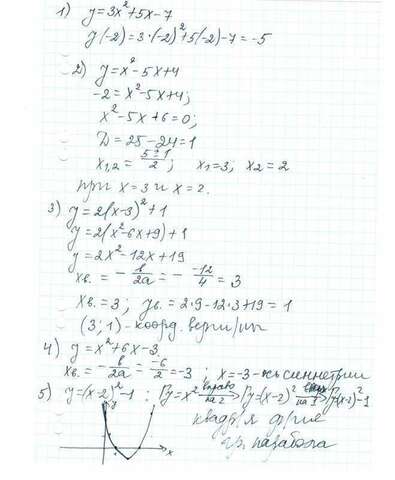 1) y=3x²+5x-7
y(-2)=3·(-2)²+5(-2)-7=-5
2) y=x²-5x+4
-2=x²-5x+4;
x²-5x+6=0;
D=25-24=1
x₁,₂ = (5±1)/2 ; x₁=3; x₂=2
при x=3 и x=2.
3) y=2(x-3)²+1
y=2(x²-6x+9)+1
y=2x²-12x+19
xв. = -b/2a = - -12/4 = 3
xв.=3; yв.=2·9-12·3+19=1
(3; 1)-коорд. вершины
4) y=x²+6x-3
xв.=-b/2a=-6/2=-3; x=-3-ось симметрии
5) y=(x-2)²-1 : Гy=x² вправо на 2 Гy=(x-2)² вниз на 1 Гy(x-2)²-1
y
квадр/я ф/ция
x
гр. парабола